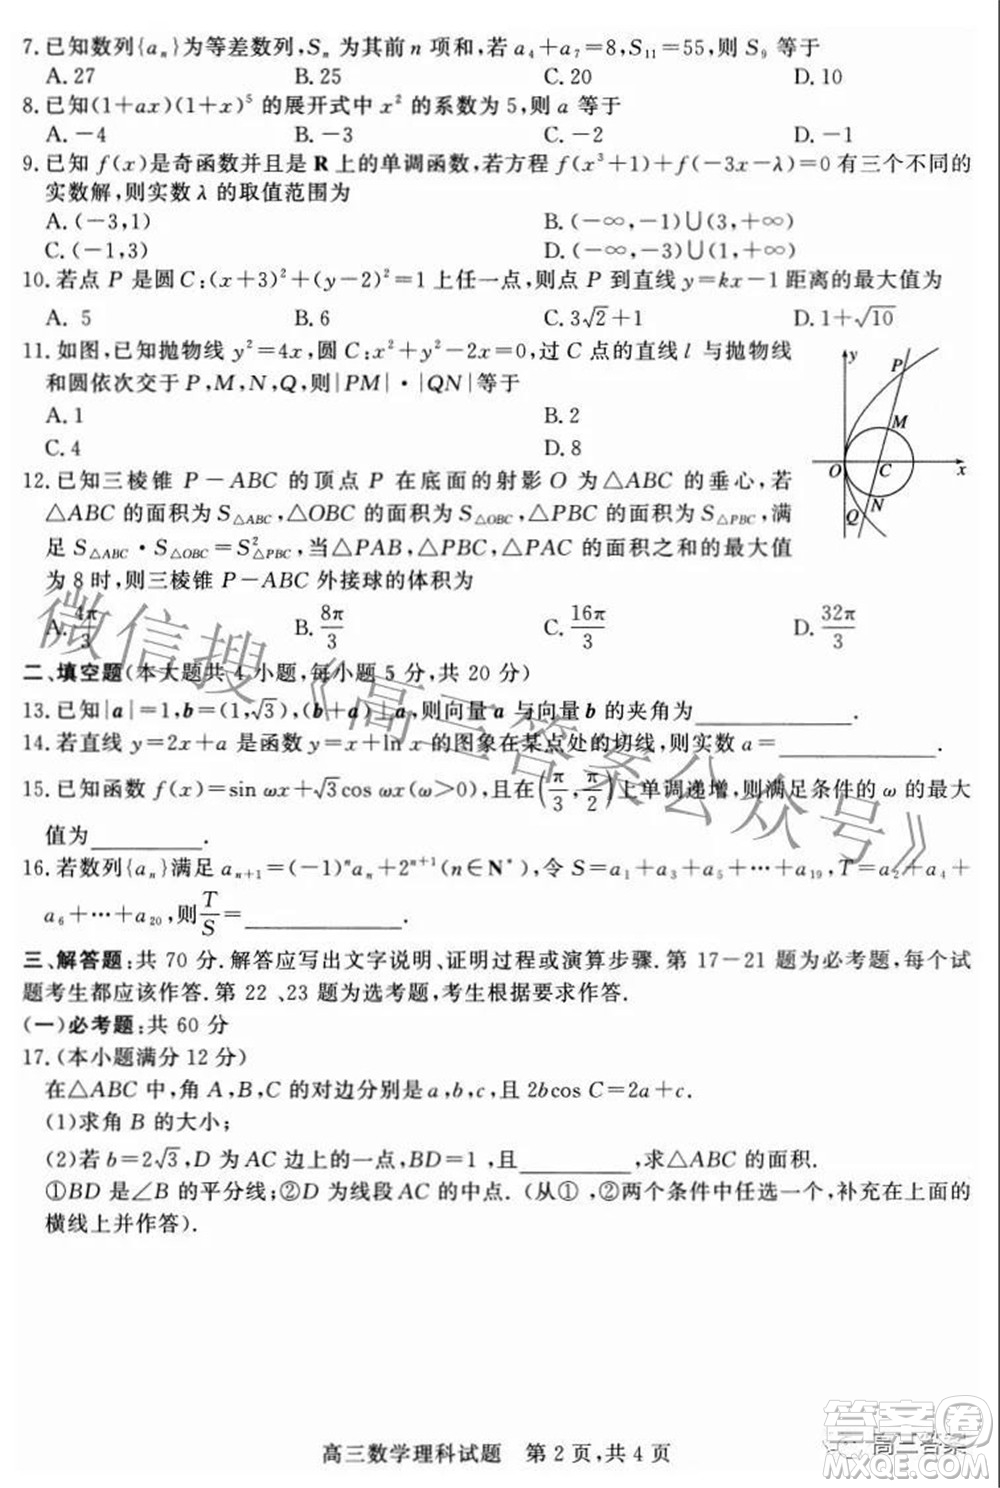 7.已知数列{aₙ}为等差数列,Sₙ 为其前 n 项和,若 a₄+a₇=8,S₁₁=55,则 S₉ 等于
A. 27 B. 25 C. 20 D. 10
8.已知(1+ax)(1+x)⁵ 的展开式中 x² 的系数为 5,则 a 等于
A. −4 B. −3 C. −2 D. −1
9.已知 f(x)是奇函数并且是 R 上的单调函数,若方程 f(x³+1)+f(−3x−λ)=0 有三个不同的
实数解,则实数 λ 的取值范围为
A. (−3,1) B. (−∞,−1)∪(3,+∞)
C. (−1,3) D. (−∞,−3)∪(1,+∞)
10.若点 P 是圆 C:(x+3)²+(y−2)²=1 上任一点,则点 P 到直线 y=kx−1 距离的最大值为
A. 5 B. 6 C. 3√2+1 D. 1+√10
11.如图,已知抛物线 y²=4x,圆 C:x²+y²−2x=0,过 C 点的直线 l 与抛物线
和圆依次交于 P,M,N,Q,则|PM|·|QN|等于
A. 1 B. 2
C. 4 D. 8
y
P
M
O
C
x
N
Q
12.已知三棱锥 P−ABC 的顶点 P 在底面的射影 O 为△ABC 的垂心,若
△ABC 的面积为 S△ABC,△OBC 的面积为 S△OBC,△PBC 的面积为 S△PBC,满
足 S△ABC·S△OBC=S²△PBC,当△PAB,△PBC,△PAC 的面积之和的最大值
为 8 时,则三棱锥 P−ABC 外接球的体积为
A. 4π/3 B. 8π/3 C. 16π/3 D. 32π/3
二、填空题(本大题共 4 小题,每小题 5 分,共 20 分)
13.已知|a|=1,b=(1,√3),(b+a)⊥a,则向量 a 与向量 b 的夹角为________.
14.若直线 y=2x+a 是函数 y=x+ln x 的图象在某点处的切线,则实数 a=________.
15.已知函数 f(x)=sin ωx+√3cos ωx(ω>0),且在(π/3,π/2)上单调递增,则满足条件的 ω 的最大
值为________.
16.若数列{aₙ}满足 aₙ₊₁=(−1)ⁿaₙ+2ⁿ⁺¹(n∈N*),令 S=a₁+a₃+a₅+⋯+a₁₉,T=a₂+a₄+
a₆+⋯+a₂₀,则T/S=________.
三、解答题:共 70 分.解答应写出文字说明、证明过程或演算步骤.第 17−21 题为必考题,每个试
题考生都应该作答.第 22、23题为选考题,考生根据要求作答.
(一)必考题:共 60 分
17.(本小题满分 12 分)
在△ABC 中,角 A,B,C 的对边分别是 a,b,c,且 2bcos C=2a+c.
(1)求角 B 的大小;
(2)若 b=2√3,D 为 AC 边上的一点,BD=1,且________,求△ABC 的面积.
①BD 是∠B 的平分线;②D 为线段 AC 的中点.(从①,②两个条件中任选一个,补充在上面的
横线上并作答).
微信搜《高三答案公众号》
高三数学理科试题 第 2 页,共 4 页
答案圈
高三答案
MXQE.COM